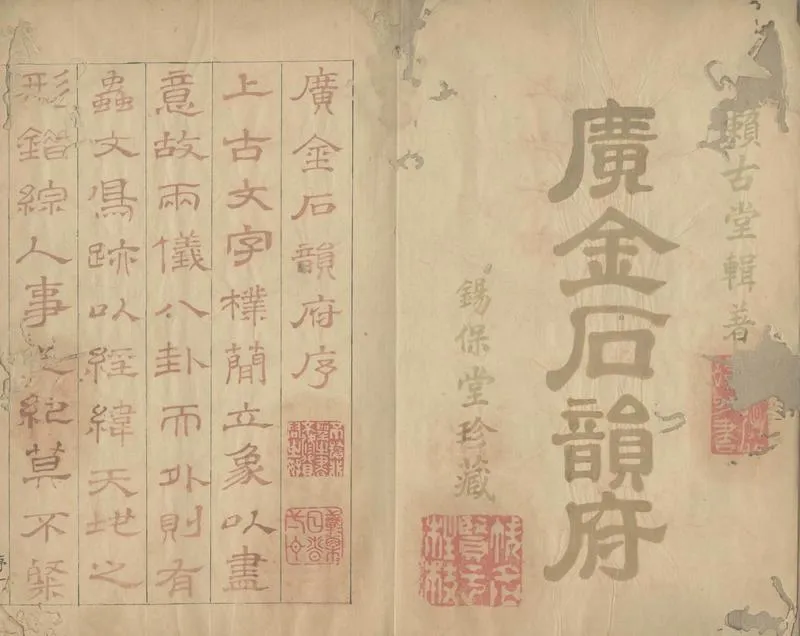 賴古堂輯著
廣金石韻府
錫保堂珍藏
廣金石韻府序
上古文字樸簡立象以盡
意故兩儀八卦而外則有
蟲文鳥跡以經緯天地之
形錯綜人事之紀莫不粲
序